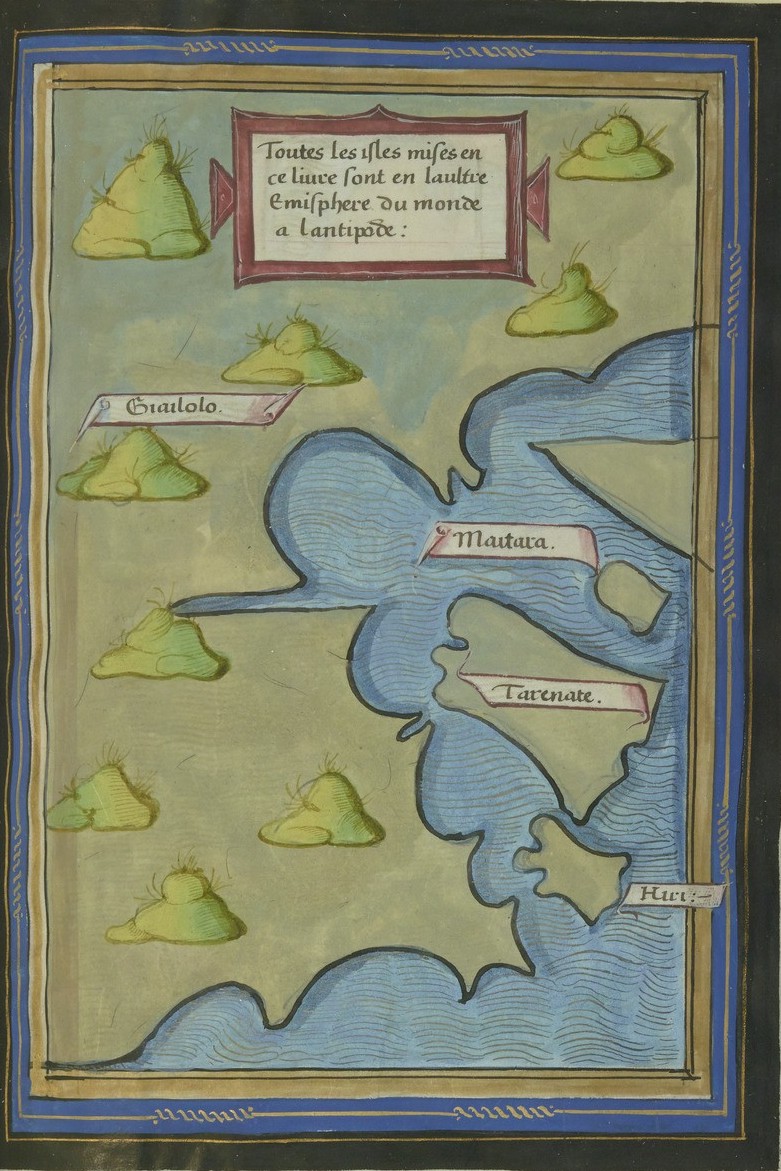 Toutes les isles mises en
ce liure sont en laultre
Emisphere du monde
a lantipode :
Giailolo.
Maitara.
Tarenate.
Hiri :-